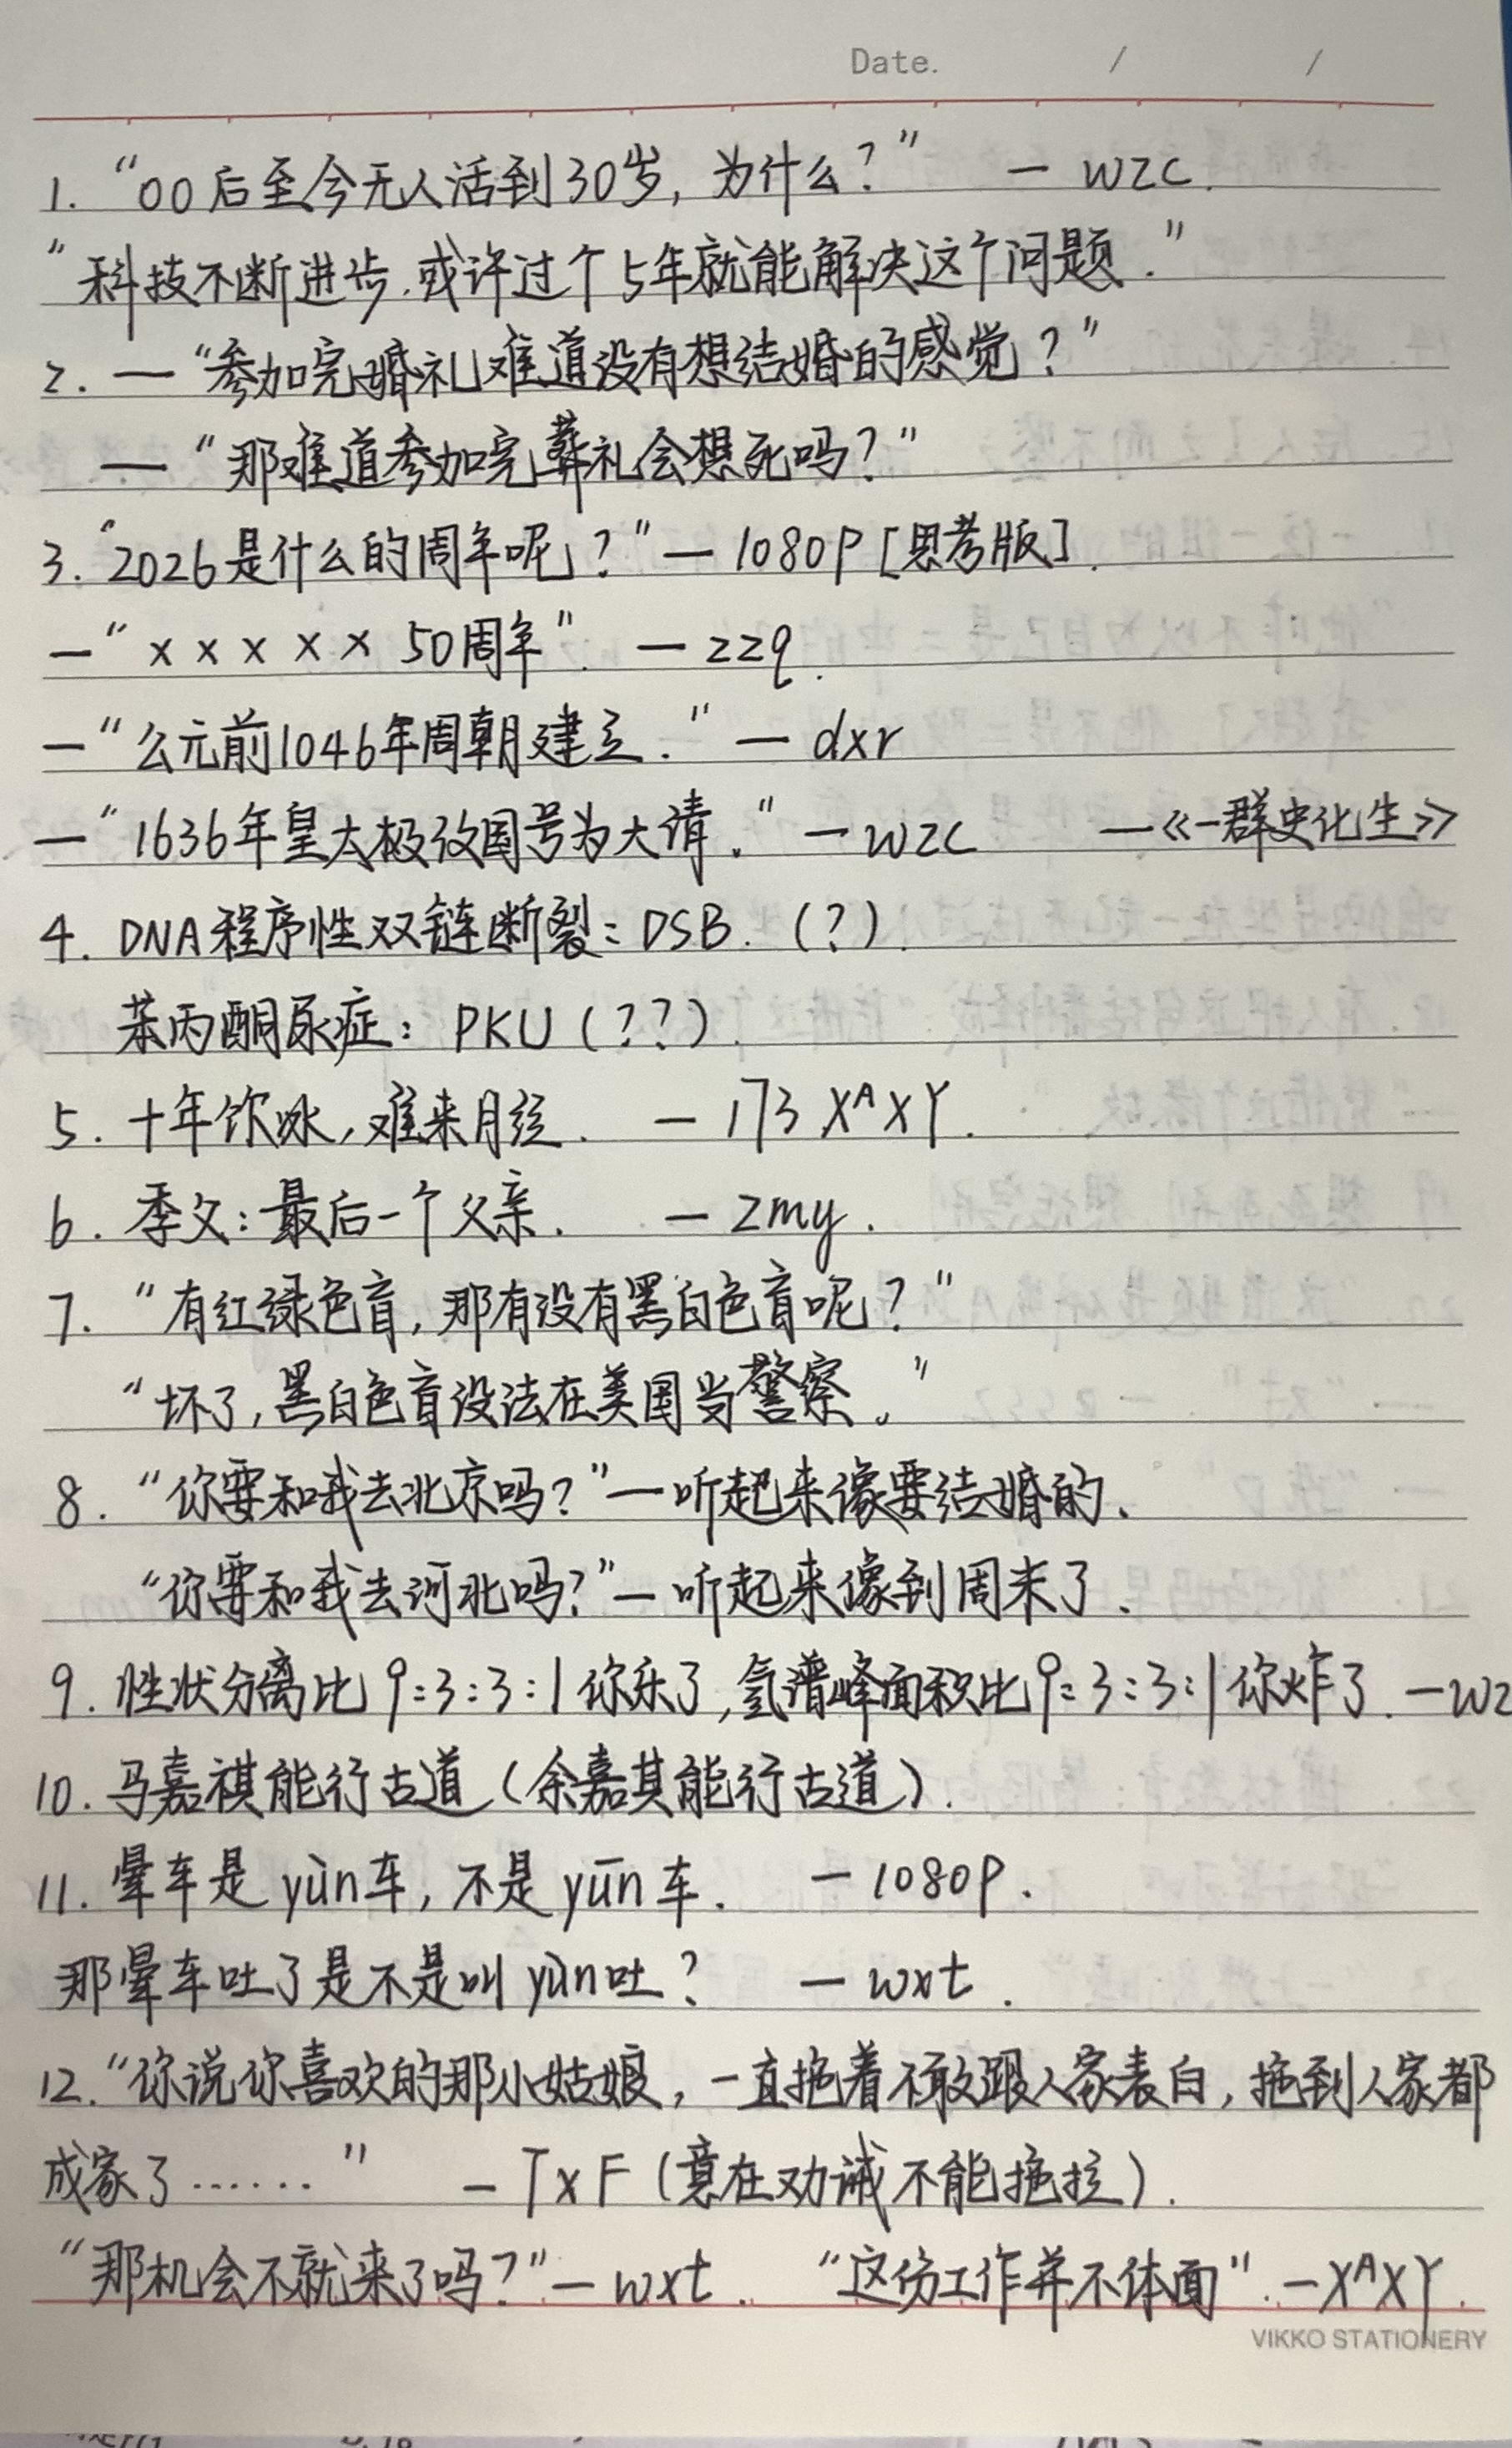 Date. / /
1. "00后至今无人活到30岁, 为什么?" — wzc.
"科技不断进步.或许过个5年就能解决这个问题."
2. — "参加完婚礼难道没有想结婚的感觉?"
— "那难道参加完葬礼会想死吗?"
3. "2026是什么的周年呢?" — 1080P [思考版].
— "××××× 50周年". — zzq.
— "公元前1046年周朝建立." — dxr
— "1636年皇太极改国号为大请." — wzc —《一群史化生》
4. DNA程序性双链断裂: DSB. (?).
苯丙酮尿症: PKU (??).
5. 十年饮冰, 难来月经. — 173 XᴬXY.
6. 季父: 最后一个父亲. — zmy.
7. "有红绿色盲, 那有没有黑白色盲呢?"
"坏了, 黑白色盲没法在美国当警察。"
8. "你要和我去北京吗?" — 听起来像要结婚的.
"你要和我去河北吗?" — 听起来像到周末了.
9. 性状分离比 9:3:3:1 你乐了, 氢谱峰面积比 9:3:3:1 你炸了. — wz
10. 马嘉祺能行古道 (余嘉其能行古道).
11. 晕车是 yùn车, 不是 yūn车. — 1080P.
那晕车吐了是不是叫 yùn吐? — wxt.
12. "你说你喜欢的那小姑娘, 一直拖着不敢跟人家表白, 拖到人家都
成家了……" — TxF (意在劝诫不能拖拉).
"那机会不就来了吗?" — wxt. "这份工作并不体面". — XᴬXY.
VIKKO STATIONERY